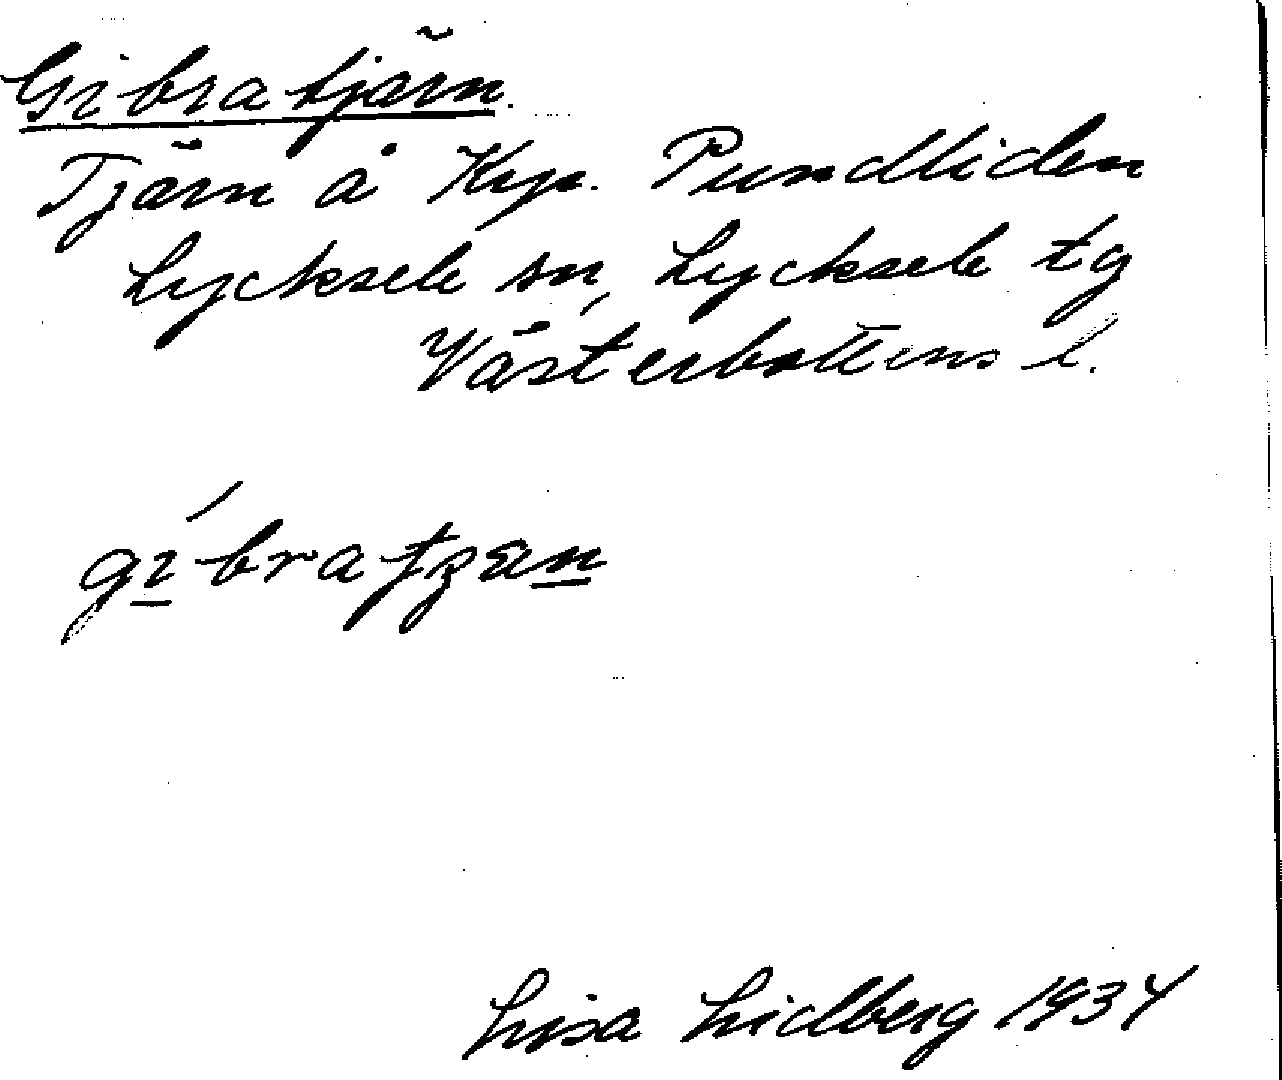 Gibratjärn.
Tjärn å Krp. Pundliden
Lycksele sn, Lycksele tg
Västerbottens l.
Lisa Lidberg 1934